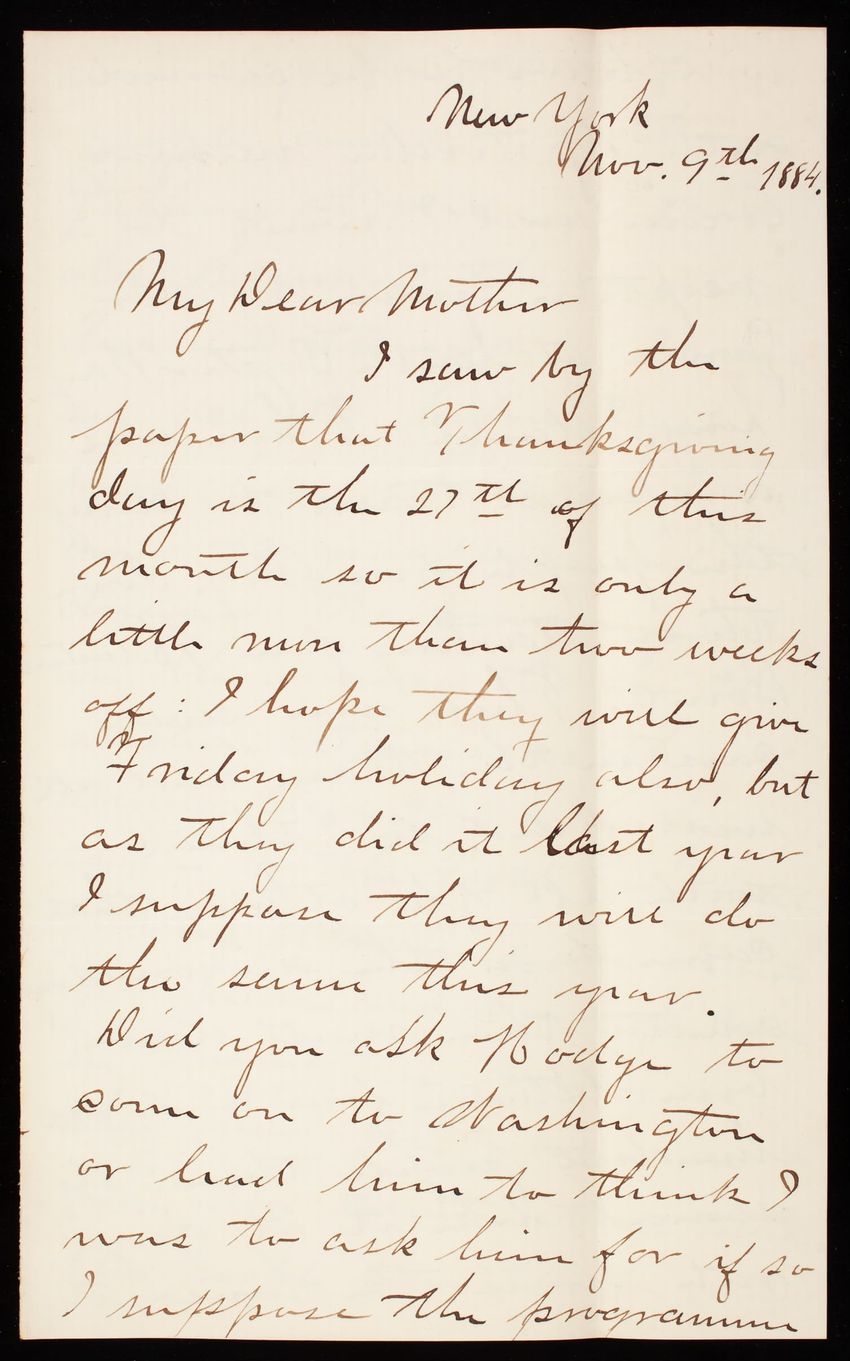 New York
Nov. 9th 1884.
My Dear Mother
I saw by the
paper that Thanksgiving
day is the 27th of this
month so it is only a
little more than two weeks
off: I hope they will give
Friday holiday also, but
as they did it last year
I suppose they will do
the same this year.
Did you ask Hodge to
come on to Washington
or lead him to think I
was to ask him for if so
I suppose the programme